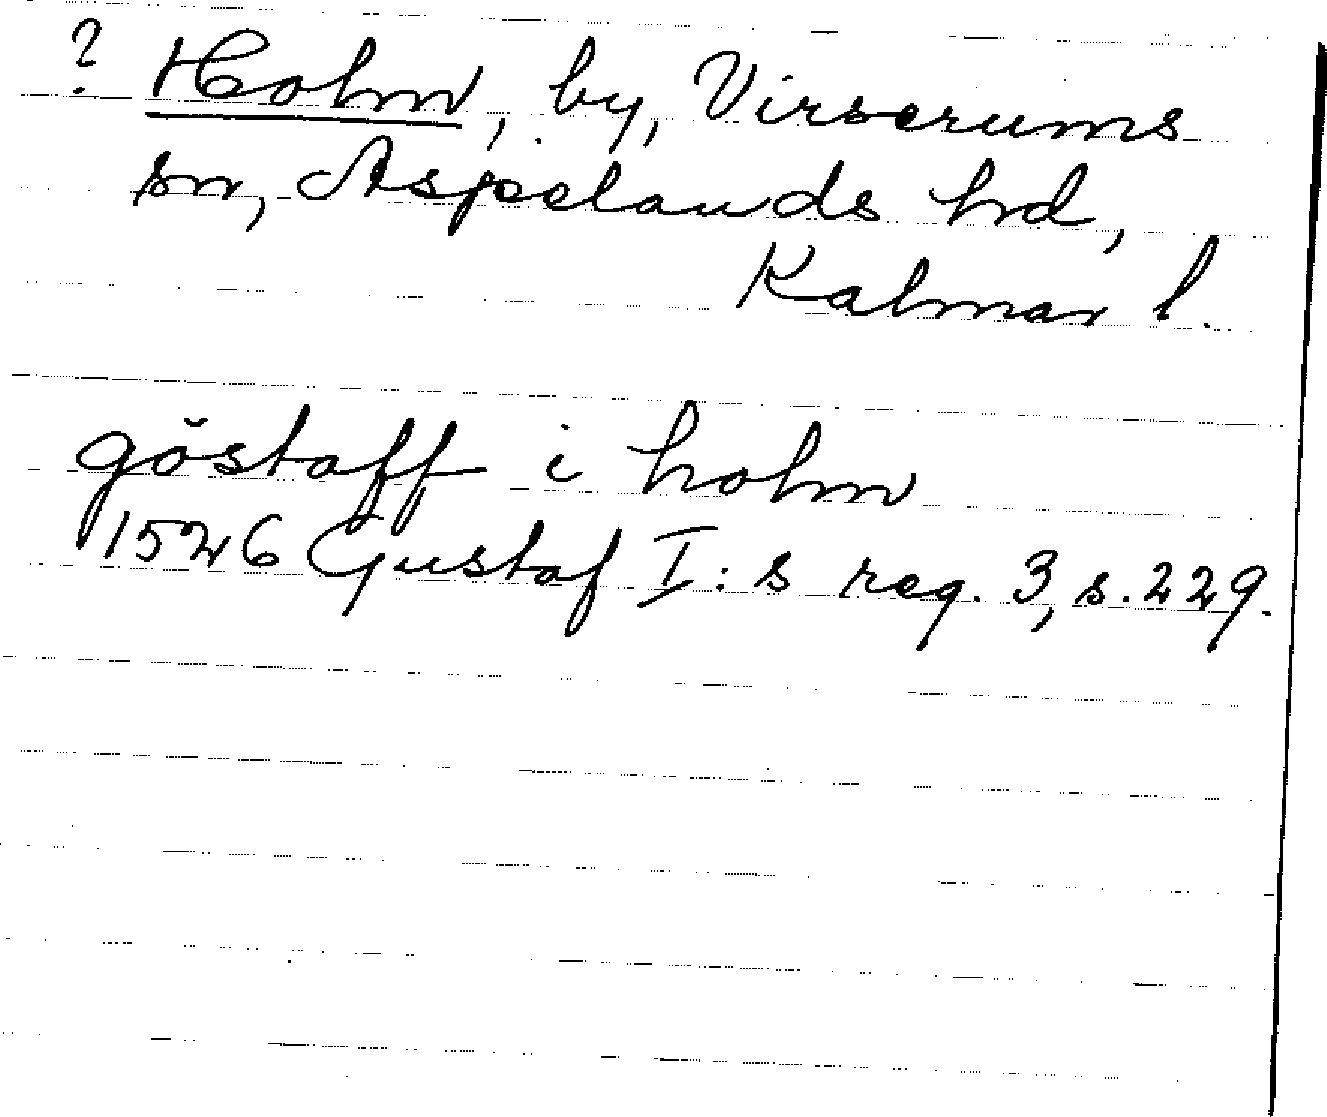 ? Holm, by, Virserums
sn, Aspelands hd,
Kalmar l.
göstaff i holm
1526 Gustaf I:s reg. 3, s. 229.